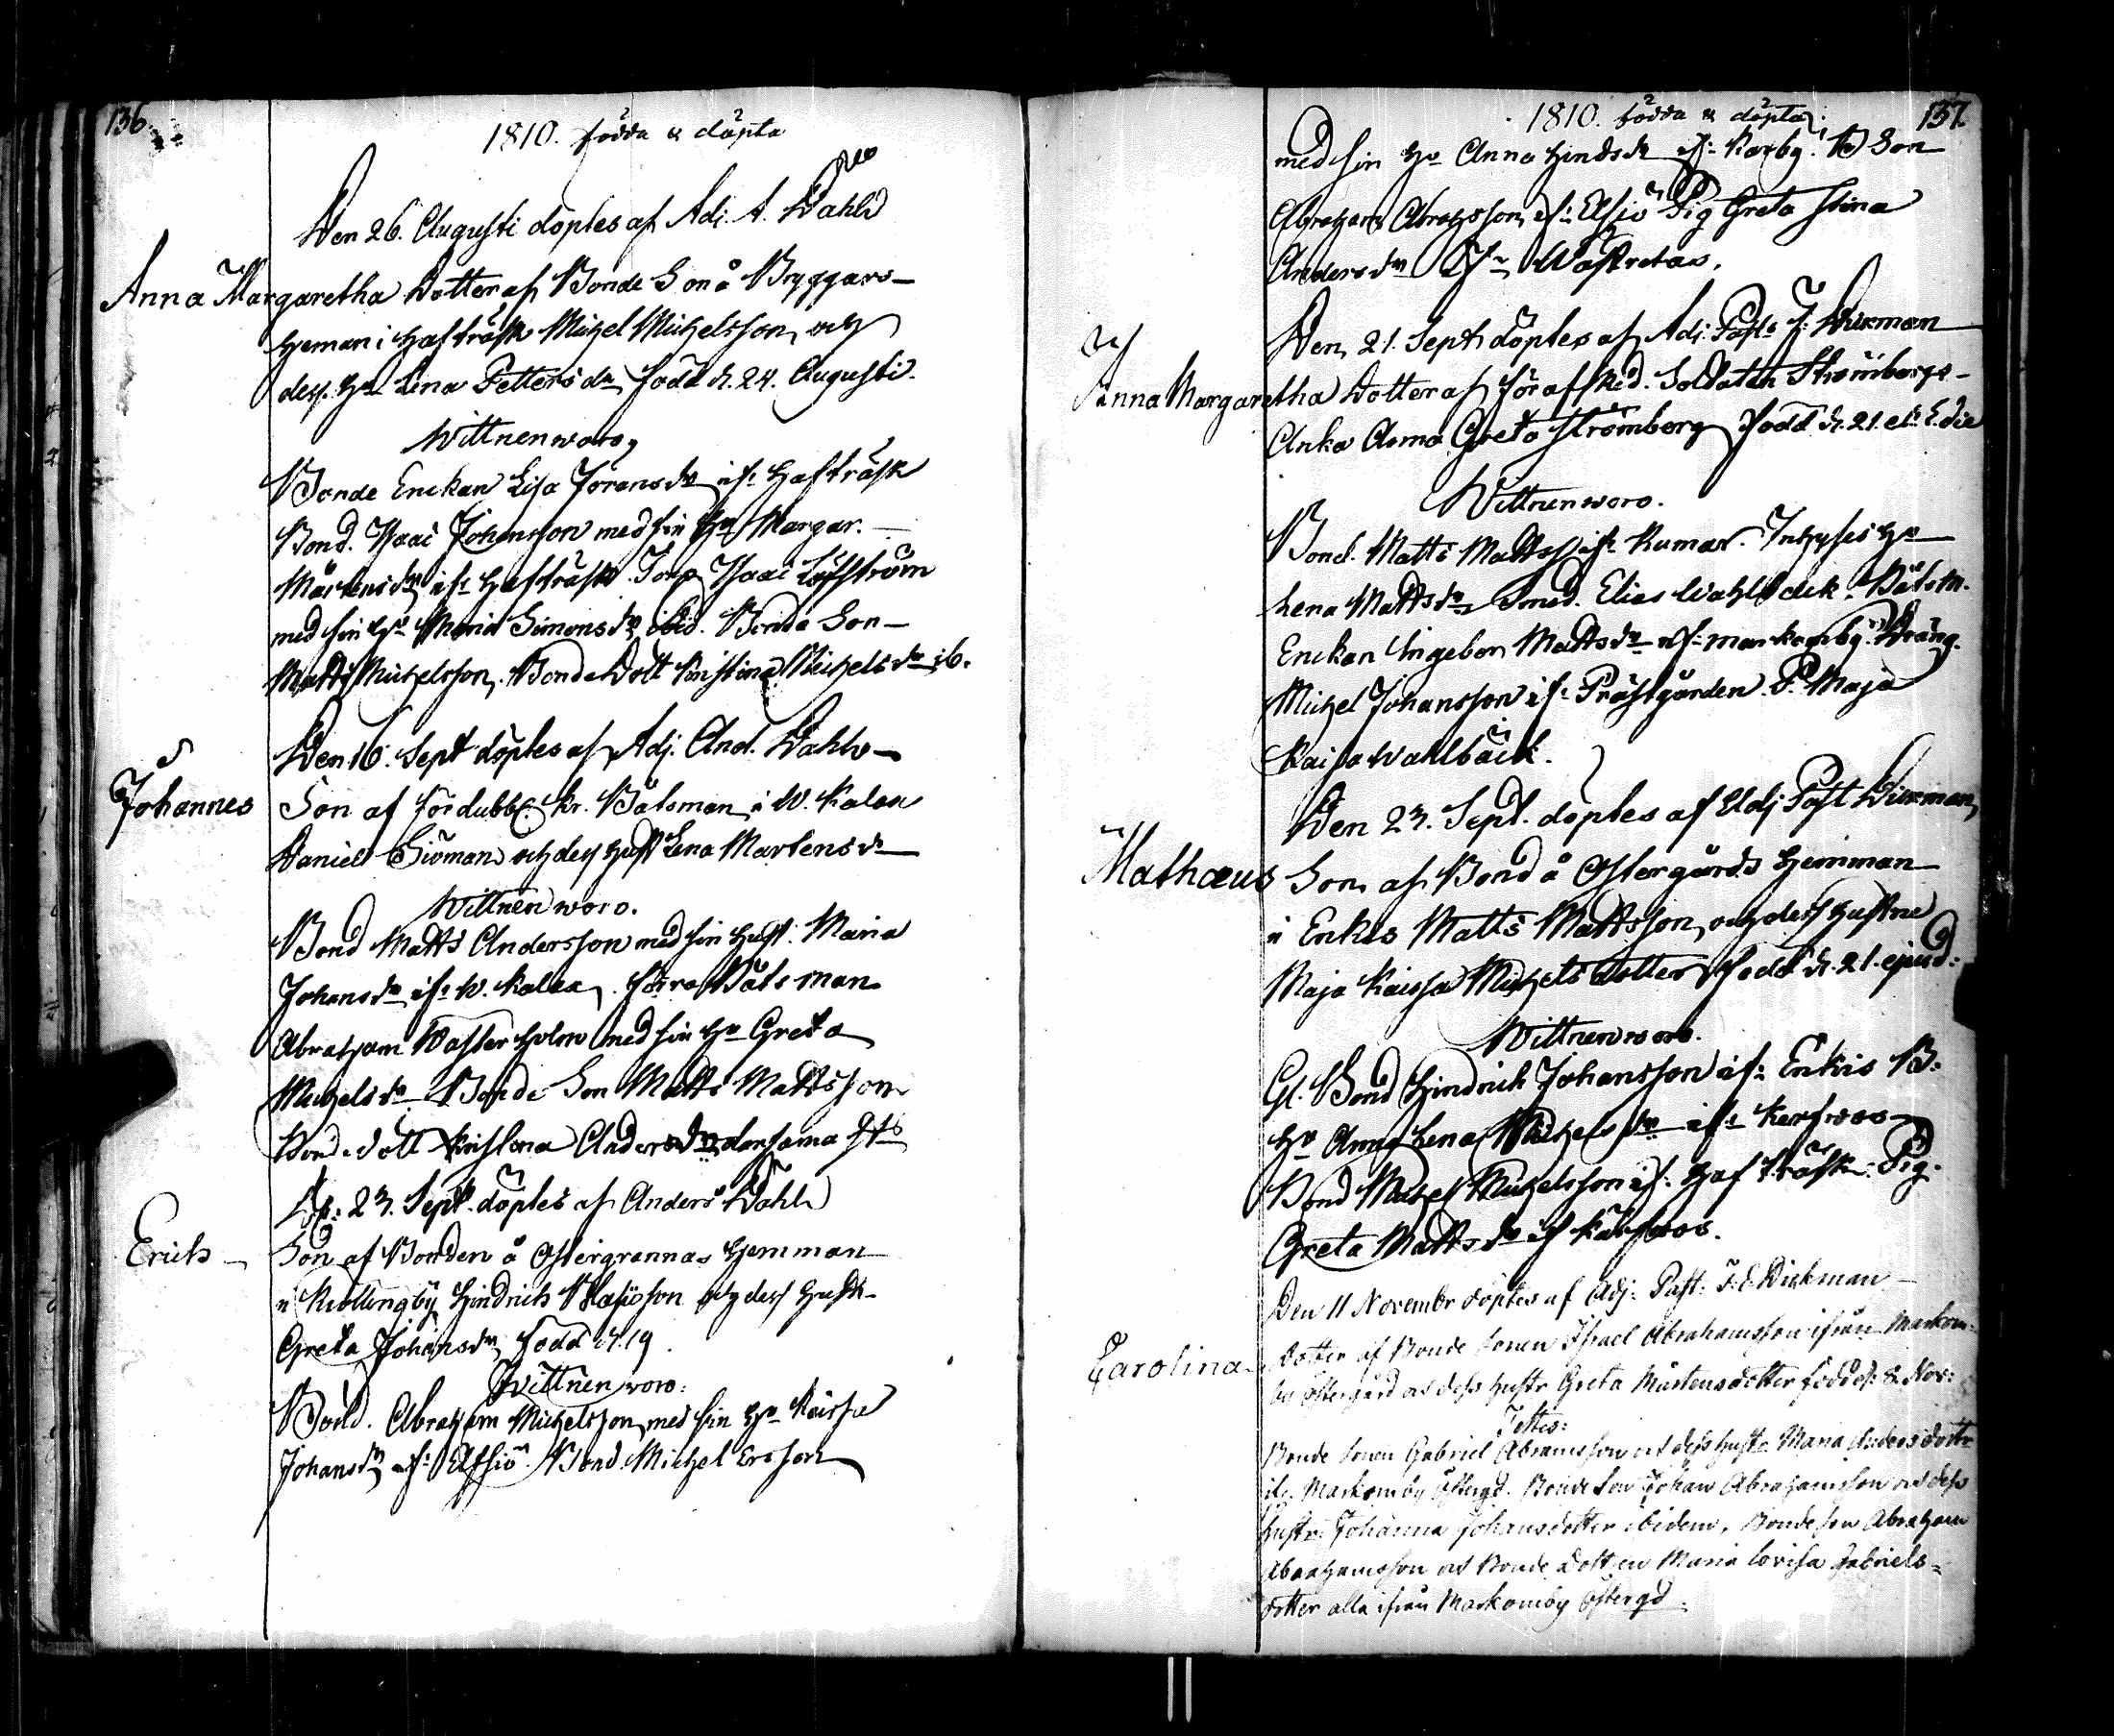 136
1810. födda & döpta
Den 26. Augusti döptes af Adj. A. Dahl
Anna Margaretha Dotter af Bonde Son å Byggars-
heman i Hafträsk Michel Michelsson, och
dess Hu Lena Petters dr född d. 24. Augusti.
Wittnen woro,
Bonde Enckan Lisa Jörans dr if: Hafträsk
Bond. Isaac Johansson med sin Hu Margar.
Mårtens dr if: Hafträsk. Torp Isaac Löfström
med sin Hu Maria Simons dr ibid. Bonde Son
Matts Michelsson, Bonde Dott Kristina Michels dr ib.
Den 16. Sept döptes af Adj. And. Dahl
Johannes Son af för dubbl. Kr. Båtsman i W. Kalax
Daniel och dess Hust Lena Martens dr
Wittnen woro.
Bond Matts Andersson med sin Hust. Maria
Johans dr if: W. Kalax, förra Båtsman
Abraham Wasterholm med sin Hu Greta
Michels dr Bonde Son Matts Mattsson
Bonde dott Kristena Anders dr dersama st
D: 23. Sept. döptes af Anders Dahl
Erich Son af Bonden å Östergrannas Hemman
i Knöttingby Hindrich och dess Hust
Greta Johans dr född d. 19
Wittnen woro:
Bond. Abraham Michelsson med sin Hu Kaissa
Johans dr if: Elfsiö. Bond. Michel Ersson
1810. födda & döpta. 137.
med sin Hu Anna Hinds dr if: Karby. Son
Abraham Abrahsson, if: Elfsiö Pig Greta Stina
Anders dr
Den 21. Sept döptes af Adj. Past. J. Dickman
Anna Margaretha Dotter af för afsked. Soldaten Strömbergs
Anka Anna Greta Strömberg född d. 21.
Wittnen woro.
Bond. Matts Mattss if: Rumar. Inhyses Hu
Lena Matts dr Smed. Elias Båtsm.
Enckan Ingebor Matts dr if: markomby. Dräng.
Michel Johansson if: Prästgården. P. Maja
Kaisa Wahlbäck.
Den 23. Sept. döptes af Adj Past Dickman,
Mathæus Son af Bond å Östergårds Hemman
i Enkis Matts Mattsson, och dess Hustru
Maja Kaissa Michels dotter född d. 21. ejusd:
Wittnen woro.
Gl. Bond Hindrich Johansson if: Enkis B:
Hu Anna Lena Michels dr if:
Bond Michel Michelsson if: Hafträsk. Pig.
Greta Matts dr if
Den 11 Novembr döptes af Adj: Past: J: E: Dickman
Carolina Dotter af Bonde Sonen Israel Abrahamsson ifrån Markom-
by Östergård och dess hustr Greta Mårtensdotter född d: 8. Nov:
Testes:
Bonde Sonen Gabriel Abramsson och dess hustr Maria Andersdottr
if: Markomby Östergd. Bonde Son Johan Abrahamsson och dess
hustr: Johanna Johansdotter ibidem, Bonde son Abraham
Abrahamsson och Bonde Dottren Maria Lovisa Gabriels-
dotter alla ifrån Markomby Östergd.